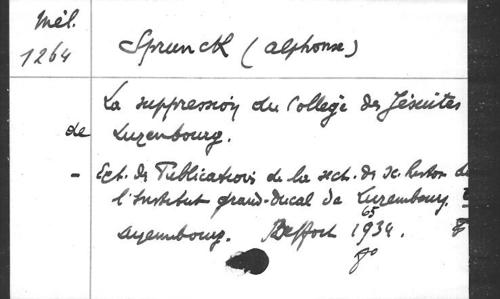 Mél.
1264
Sprunck (Alphonse)
La suppression du Collège des Jésuites
de Luxembourg.
- Ext. des Publications de la sect. des sc. histor. de
l'Institut grand-ducal de Luxembourg
65
Luxembourg. Beffort 1934.
8°